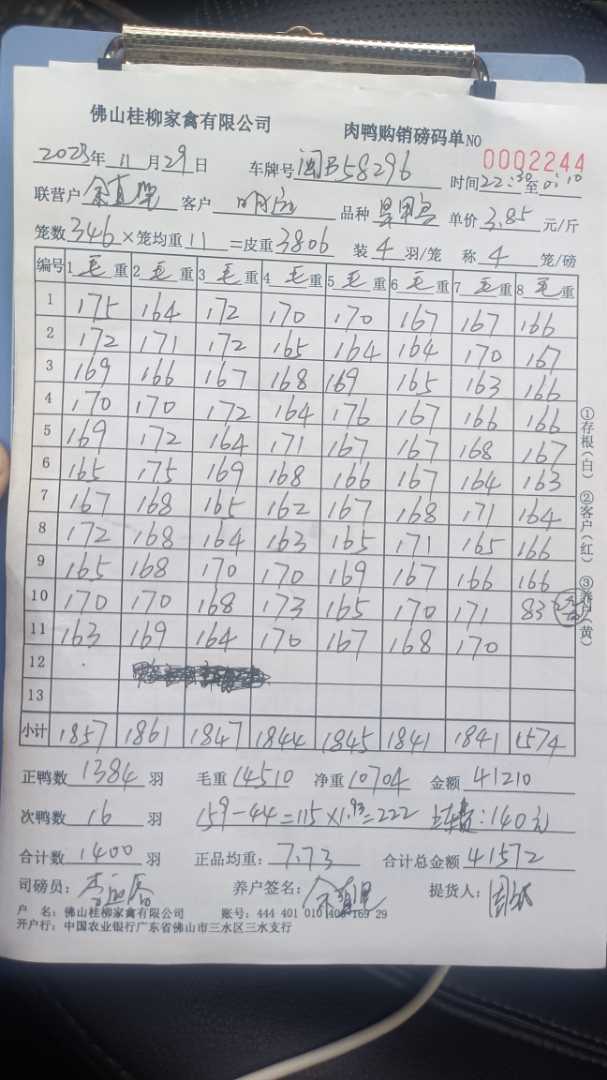 佛山桂柳家禽有限公司 肉鸭购销磅码单NO 0002244
2023年11月29日 车牌号闽B58296 时间22:30至0:10
联营户 客户 明江 品种 单价3.85元/斤
笼数346×笼均重11=皮重3806 装4羽/笼 称4笼/磅
编号 1毛重 2毛重 3毛重 4毛重 5毛重 6毛重 7毛重 8毛重
1 175 164 172 170 170 167 167 166
2 172 171 172 165 164 164 170 167
3 169 166 167 168 169 165 163 166
4 170 170 172 164 176 167 166 166
5 169 172 164 171 167 167 168 167
6 165 175 169 168 166 167 164 163
7 167 168 165 162 167 168 171 164
8 172 168 164 163 165 171 165 166
9 165 168 170 170 169 167 166 166
10 170 170 168 173 165 170 171 83
11 163 169 164 170 167 168 170
12
13
小计 1857 1861 1847 1844 1845 1841 1841 1574
①存根(白) ②客户(红) ③养户(黄)
正鸭数1384羽 毛重14510 净重10704 金额41210
次鸭数16羽 159-44=115×1.93=222 :140元
合计数1400羽 正品均重:7.73 合计总金额41572
司磅员: 养户签名: 提货人:
户 名:佛山桂柳家禽有限公司 账号:444 401 010 400 169 29
开户行:中国农业银行广东省佛山市三水区三水支行